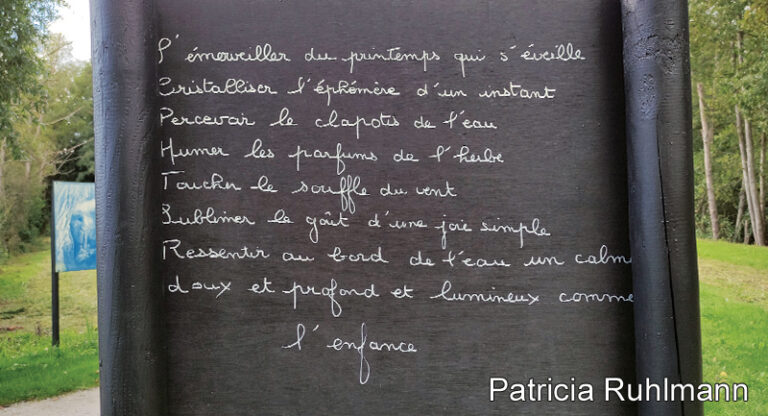 S'émerveiller du printemps qui s'éveille
Cristalliser l'éphémère d'un instant
Percevoir le clapotis de l'eau
Humer les parfums de l'herbe
Toucher le souffle du vent
Sublimer le goût d'une joie simple
Ressentir au bord de l'eau un calme
doux et profond et lumineux comme
l'enfance
Patricia Ruhlmann